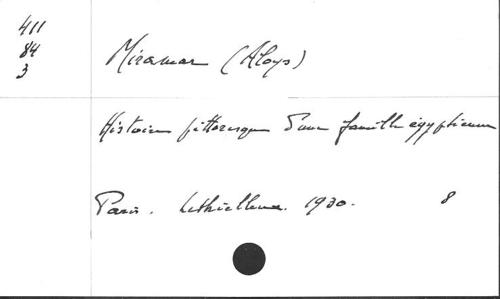 411
84
3
Miramar (Aloys)
Histoire pittoresque d'une famille égyptienne
Paris. Lethielleux. 1930. 8